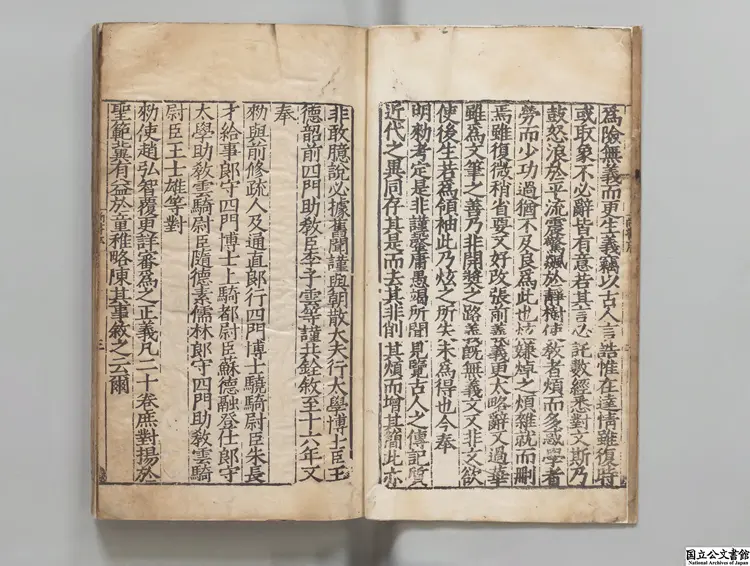 為險無義而更生義竊以古人言誥惟在達情雖復時
或取象不必辭皆有意若其言必託數經悉對文斯乃
鼓怒浪於平流震驚飆於靜樹使教者煩而多惑學者
勞而少功過猶不及良為此也炫嫌焯之煩雜就而刪
焉雖復微稍省要又好改張前義義更太略辭又過華
雖為文筆之善乃非開獎之路義既無義文又非文欲
使後生若為領袖此乃炫之所失未為得也今奉
明勑考定是非謹罄庸愚竭所聞見覽古人之傳記質
近代之異同存其是而去其非削其煩而增其簡此亦
非敢臆說必據舊聞謹與朝散大夫行大學博士臣王
德韶前四門助教臣李子雲等謹共銓敘至十六年又
奉
勑與前修疏人及通直郎行四門博士驍騎尉臣朱長
才給事郎守四門博士上騎都尉臣蘇德融登仕郎守
太學助教雲騎尉臣隨德素儒林郎守四門助教雲騎
尉臣王士雄等對
勑使趙弘智覆更詳審為之正義凡二十卷庶對揚於
聖範冀有益於童稚略陳其事敘之云爾
三
国立公文書館
National Archives of Japan